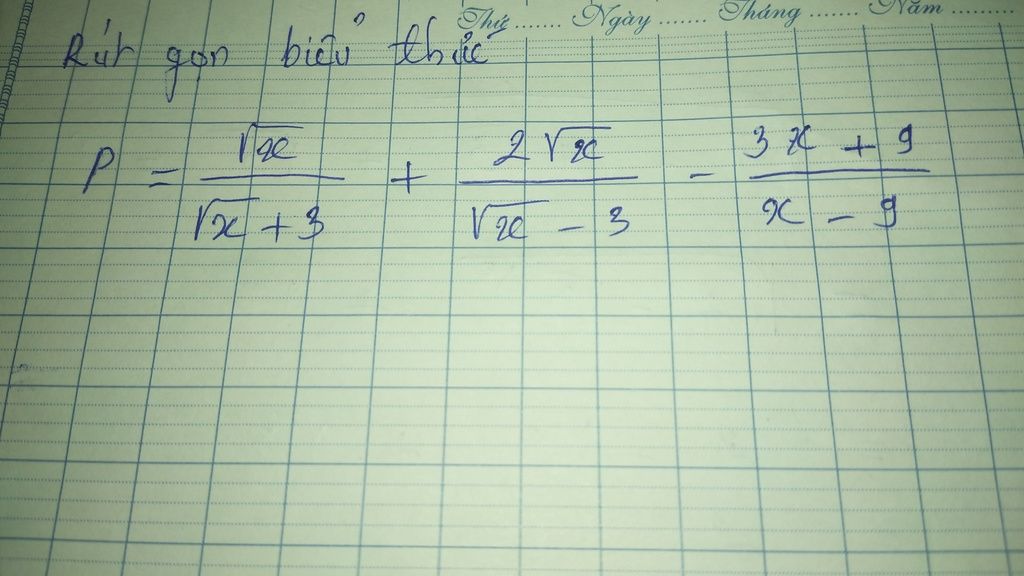 Thứ ....... Ngày ....... Tháng ....... Năm .........
Rút gọn biểu thức
P = \frac{\sqrt{x}}{\sqrt{x} + 3} + \frac{2\sqrt{x}}{\sqrt{x} - 3} - \frac{3x + 9}{x - 9}